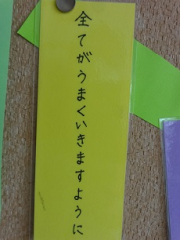 全てがうまくいきますように